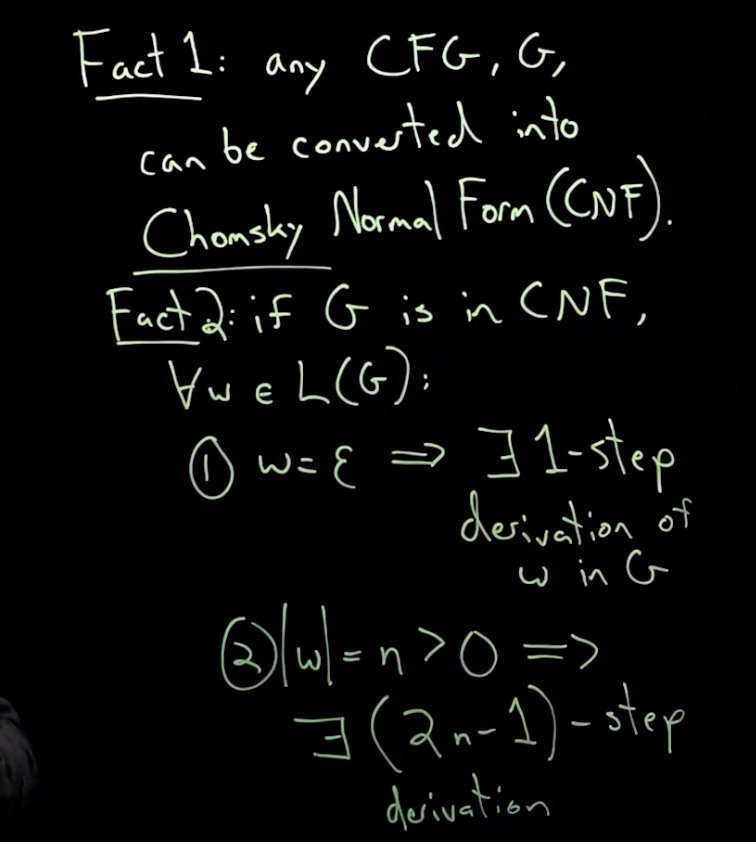 Fact 1: any CFG, G,
can be converted into
Chomsky Normal Form (CNF).
Fact 2: if G is in CNF,
∀w ∈ L(G):
① w = ε ⇒ ∃ 1-step
derivation of
w in G
② |w| = n > 0 =>
∃ (2n-1)-step
derivation